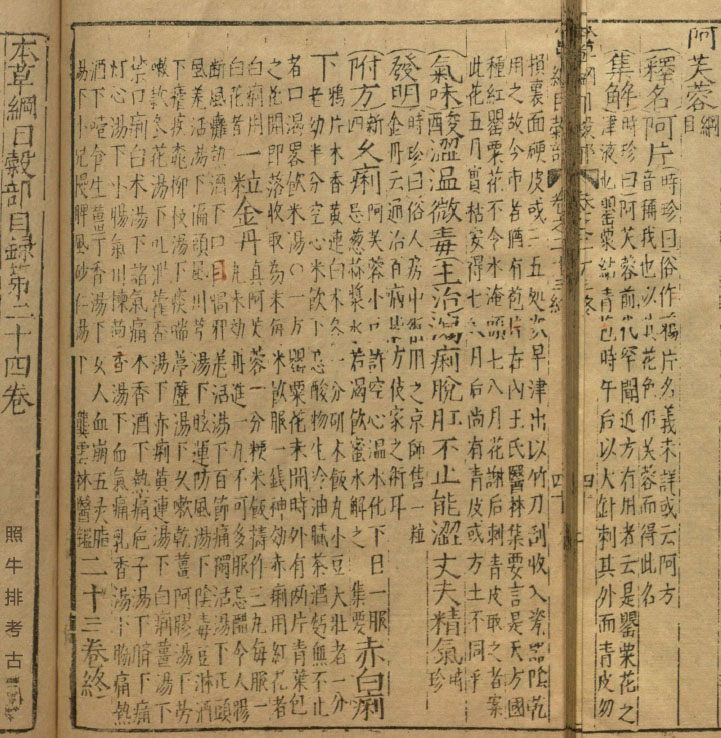 阿芙蓉 綱目
釋名阿片 時珍曰俗作鴉片名義未詳或云阿方
音稱我也以其花色似芙蓉而得此名
集解 時珍曰阿芙蓉前代罕聞近方有用者云是罌粟花之
津液也罌粟結青苞時午後以大針刺其外面青皮勿
損裏面硬皮或三五处次早津出以竹刀刮收入瓷器陰乾
用之故今市者猶有苞片在內王氏醫林集要言是天方國
種紅罌粟花不令水淹頭七八月花謝后刺青皮取之者案
此花五月實枯安得七八月后尚有青皮或方土不同乎
氣味酸澀温微毒主治瀉痢脫肛不止能澀丈夫精氣 時珍
發明 時珍曰俗人房中術用之京師售一粒
金丹云通治百病皆方伎家之術耳
附方 新四 久痢 阿芙蓉小豆許空心温水化下日一服
忌葱蒜漿水若渴飲蜜水解之 集要 赤白痢
下 鴉片木香黃連白朮各一分研末飯丸小豆大壯者一分
老幼半分空心米飲下忌酸物生冷油膩茶酒麪無不止
者口渴畧飲米湯○一方罌粟花未開時外有兩片青葉包
之花開即落收取為末每米飲服一錢神効赤痢用紅花者
白痢用白花者 一粒金丹 真阿芙蓉一分粳米飯擣作三丸每服一
丸未効再進一丸不可多服忌醋令人腸
斷風癱熱酒下口目喎邪羗活湯下百節痛獨活湯下正頭
風羌活湯下偏頭風川芎湯下眩運防風湯下陰毒豆淋酒
下瘧疾桃柳枝湯下痰喘葶藶湯下久嗽乾薑阿膠湯下勞
嗽款冬花湯下吐泄藿香湯下赤痢黃連湯下白痢薑湯下
禁口痢白朮湯下諸氣痛木香酒下熱痛梔子湯下臍下痛
灯心湯下小腸氣川楝茴香湯下血氣痛乳香湯下脇痛熱
酒下噎食生薑丁香湯下女人血崩五灵脂
湯下小児慢脾風砂仁湯下 龔雲林醫鑑 二十三卷終
本草綱目穀部目録第二十四卷
照牛排考古